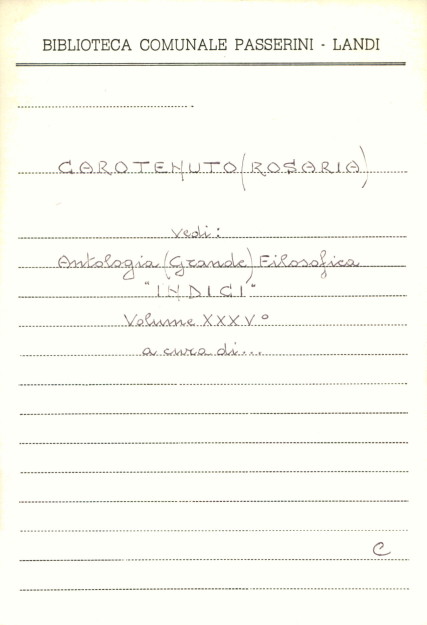 BIBLIOTECA COMUNALE PASSERINI - LANDI
CAROTENUTO (ROSARIA)
vedi:
Antologia (Grande) Filosofica
"INDICI"
Volume XXXV°
a cura di...
C